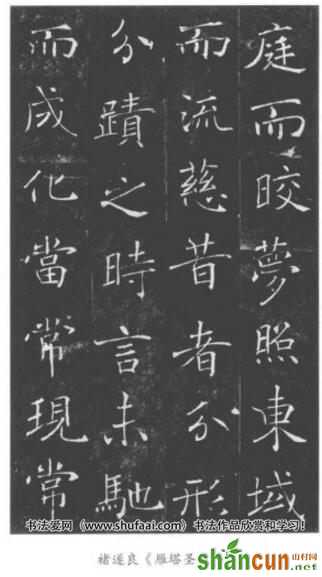 庭而晈夢照東域
而流慈昔者分形
分蹟之時言未馳
而成化當常現常
书法爱网《www.shufaai.com》书法作品欣赏和学习!
褚遂良《雁塔圣
shancun
山村网
.net